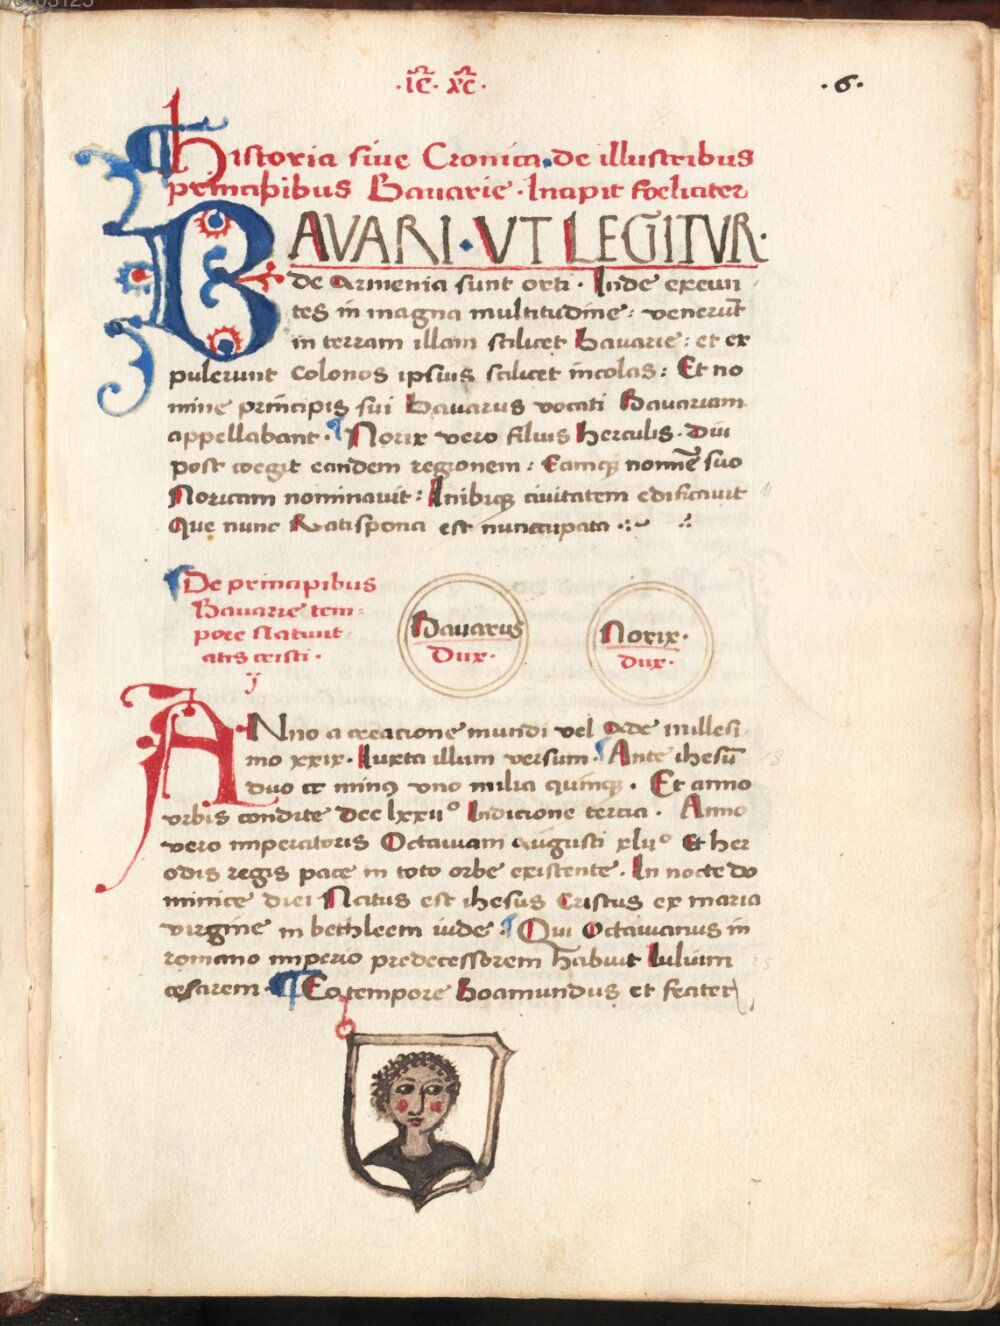 ·ic̄· xc̄·
·6·
Historia siue Cronica de illustribus
principibus Bauarie · Incipit foeliciter
BAVARI · VT LEGITVR·
de Armenia sunt orti · Inde exeun
tes in magna multitudine: venerūt
in terram illam scilicet Bauarie: et ex
pulerunt colonos ipsius scilicet incolas: Et no
mine principis sui Bauarus vocati Bauariam
appellabant · ¶ Norix vero filius herculis · diu
post coegit eandem regionem: Eamqꝫ nomīe suo
Noricam nominauit: Inibiqꝫ ciuitatem edificauit
Que nunc Ratispona est nuncupata
¶ De principibus
Bauarie tem=
pore natiuit
atis cristi ·
Bauarus
Dux·
Norix·
dux·
ANno a creacione mundi vel Ade millesi
mo xxix· Iuxta illum versum · ¶ Ante ihesū
duo cc minꝰ vno milia quinqꝫ · Et anno
vrbis condite dcc lxxii° Indicione tercia · Anno
vero imperatoris Octauiani augusti xlii° Et her
odis regis pace in toto orbe existente · In nocte do
minice diei Natus est ihesus Cristus ex maria
virgine in bethleem iude · ¶ Qui Octauianus in
romano imperio predecessorem habuit Iulium
cesarem · ¶ Eo tempore Boamundus et frater